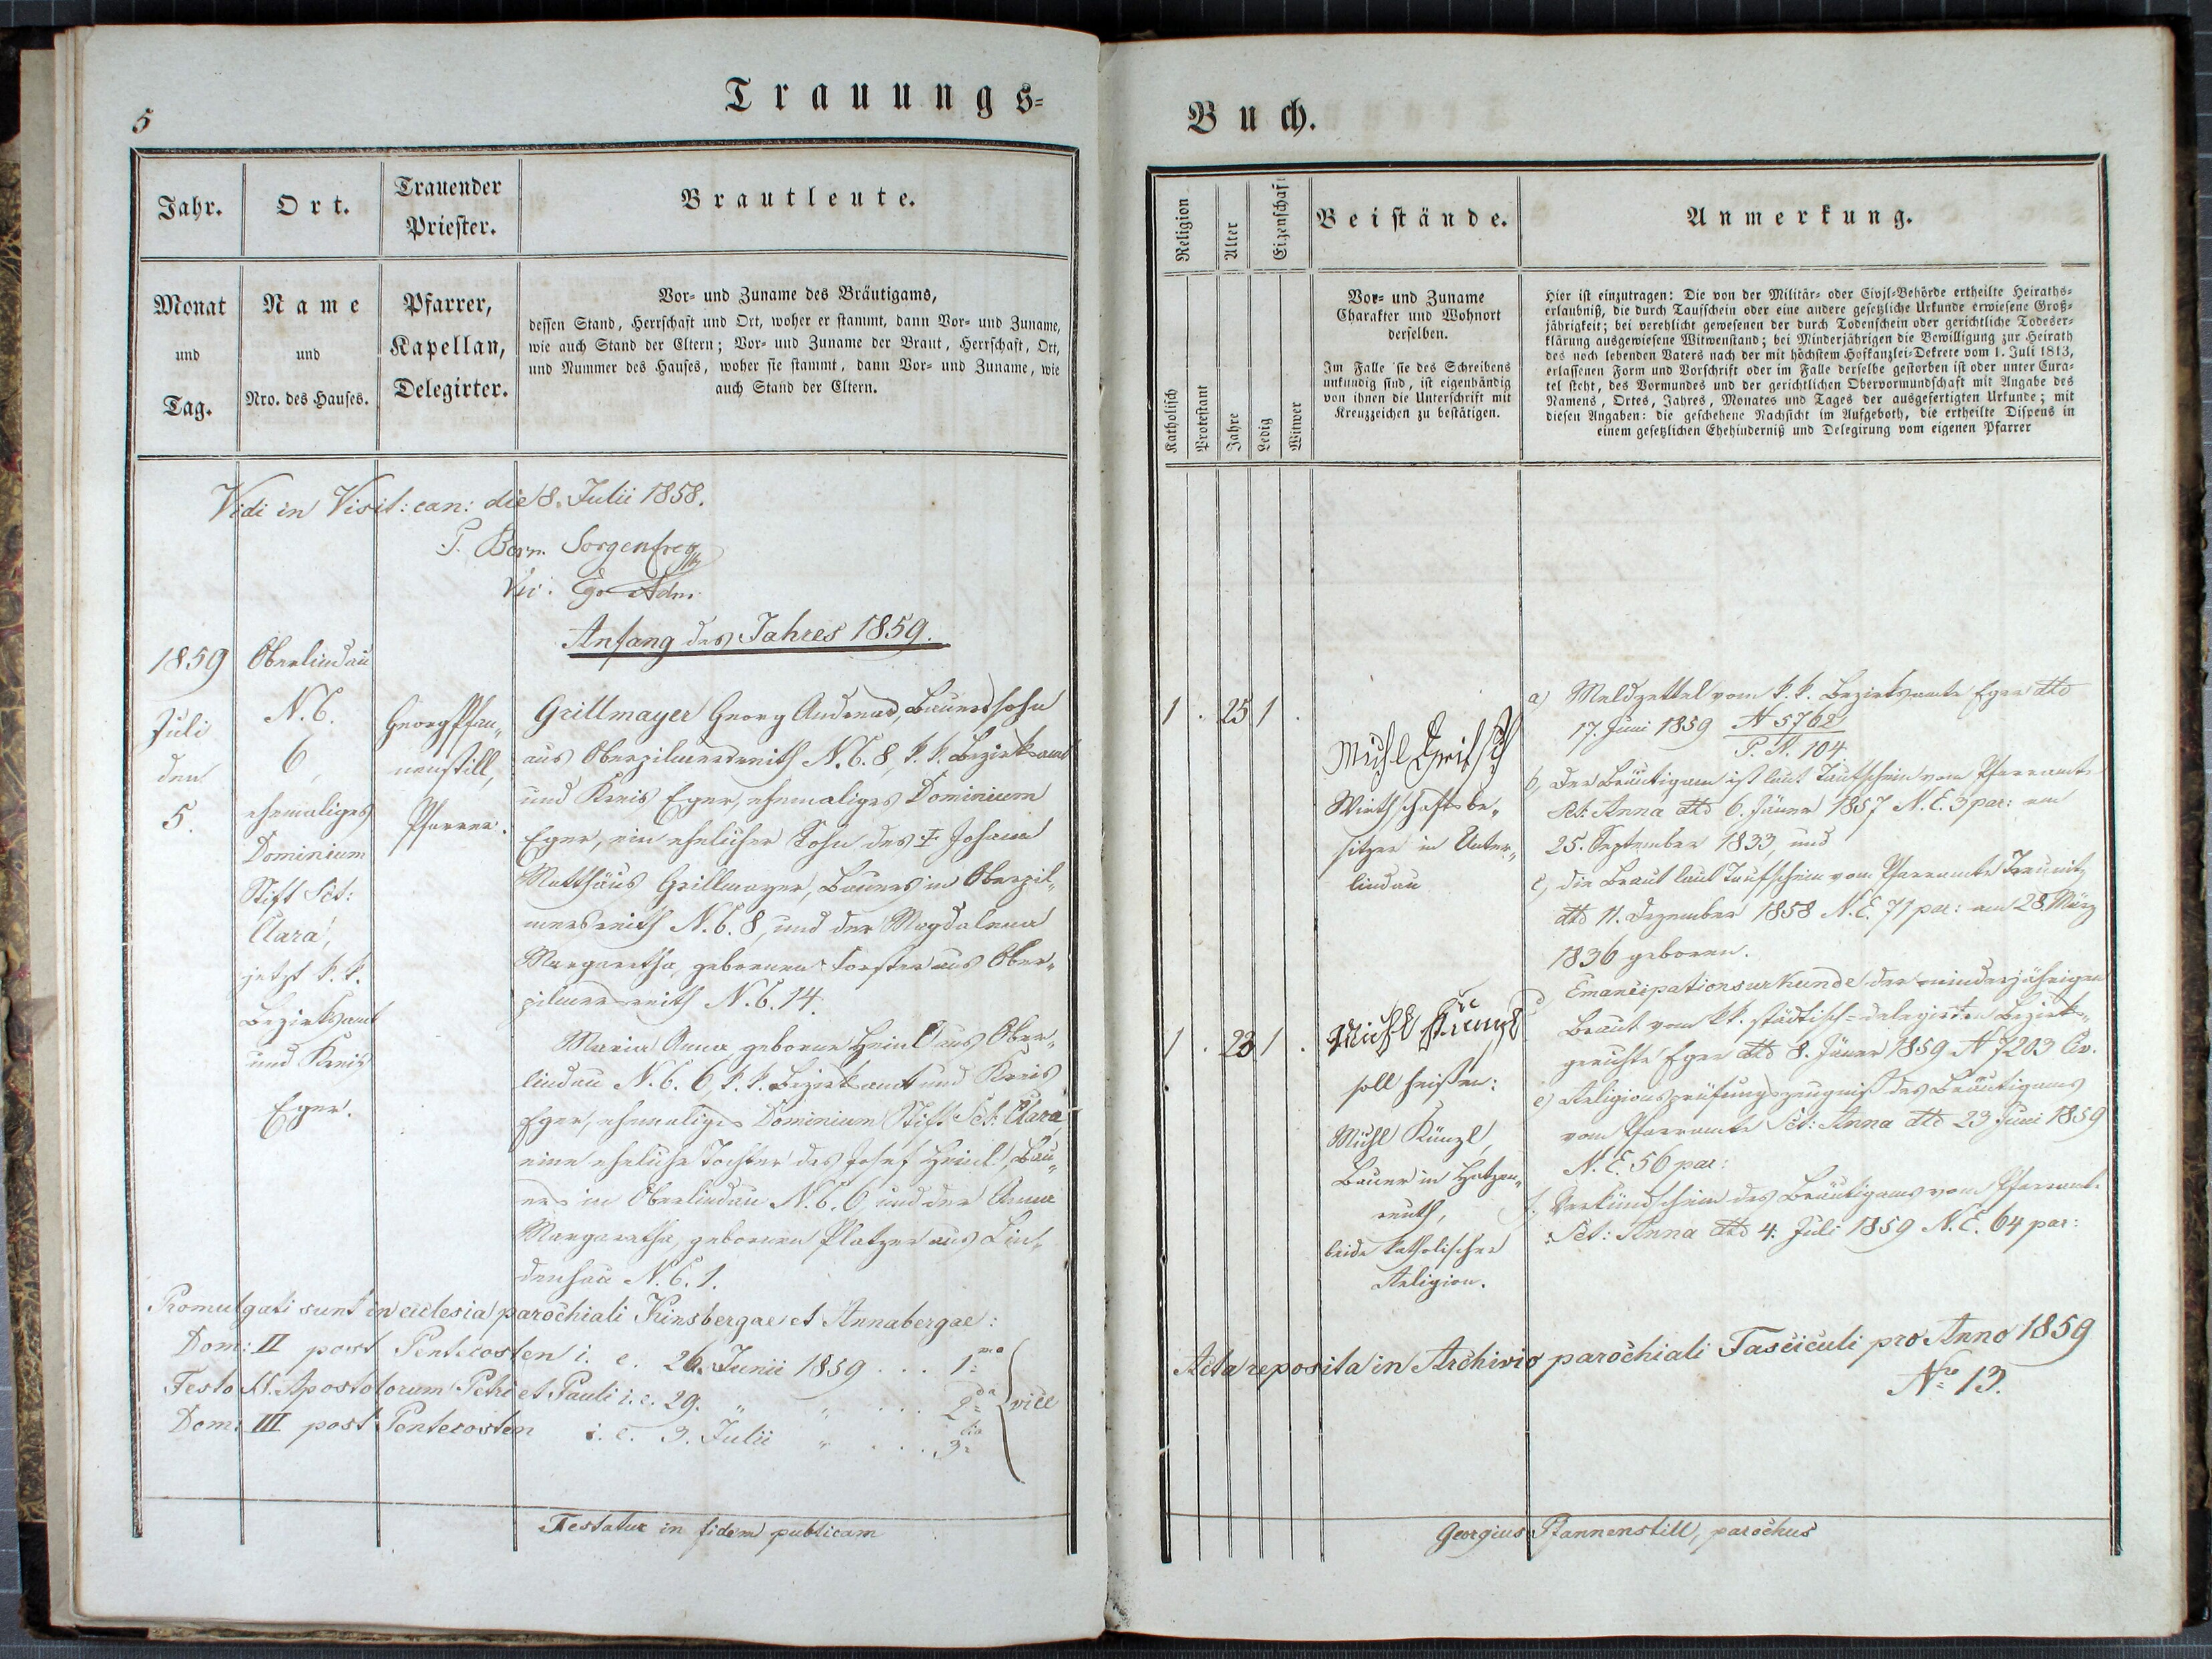 5
Trauungs-
Jahr.
Ort.
Trauender
Priester.
Brautleute.
Monat
und
Tag.
Name
und
Nro. des Hauses.
Pfarrer,
Kapellan,
Delegirter.
Vor- und Zuname des Bräutigams,
dessen Stand, Herrschaft und Ort, woher er stammt, dann Vor- und Zuname,
wie auch Stand der Eltern; Vor- und Zuname der Braut, Herrschaft, Ort,
und Nummer des Hauses, woher sie stammt, dann Vor- und Zuname, wie
auch Stand der Eltern.
Vidi in Visit: can: die 8. Julii 1858.
P. Bern. Sorgenfrey
Anfang des Jahres 1859.
1859
Juli
den
5.
Oberlindau
N. C.
6,
ehemaliges
Dominium
Stift Sct:
Clara,
jetzt k. k.
Bezirksamt
und Kreis
Eger.
Georg Pfan„
nenstill,
Pfarrer.
Grillmayer Georg Andreas, Bauerssohn
aus Oberpilmersreith N. C. 8, k. k. Bezirksamt
und Kreis Eger, ehemaliges Dominium
Eger, ein ehelicher Sohn des † Johann
Matthäus Grillmayer, Bauers in Oberpil„
mersreith N. C. 8, und der Magdalena
Margaretha, gebornen Forster aus Ober„
pilmersreith N. C. 14.
Maria Anna geborne Heinl aus Ober„
lindau N. C. 6, k. k. Bezirksamt und Kreis
Eger, ehemaliges Dominium Stift Sct: Clara,
eine eheliche Tochter des Josef Heinl, Bau„
ers in Oberlindau N. C. 6, und der Anna
Margaretha, gebornen Platzer aus Lin„
denhau N. C. 1.
Promulgati sunt in ecclesia parochiali Kinsbergae et Annabergae:
Dom: II post Pentecosten i. e. 26. Junii 1859 . . . 1ma
Festo SS. Apostolorum Petri et Pauli i. e. 29. „ „ . . . 2da vice
Dom: III post Pentecosten i. e. 3. Julii „ . . . 3tia
Testatur in fidem publicam
Buch.
Religion
Alter
Eigenschaft
Beistände.
Anmerkung.
Katholisch
Protestant
Jahre
Ledig
Witwer
Vor- und Zuname
Charakter und Wohnort
derselben.
Im Falle sie des Schreibens
unkundig sind, ist eigenhändig
von ihnen die Unterschrift mit
Kreuzzeichen zu bestätigen.
Hier ist einzutragen: Die von der Militär- oder Civil-Behörde ertheilte Heiraths-
erlaubniß, die durch Taufschein oder eine andere gesetzliche Urkunde erwiesene Groß-
jährigkeit; bei verehlicht gewesenen der durch Todenschein oder gerichtliche Todeser-
klärung ausgewiesene Witwenstand; bei Minderjährigen die Bewilligung zur Heirath
des noch lebenden Vaters nach der mit höchstem Hofkanzlei-Dekrete vom 1. Juli 1813,
erlassenen Form und Vorschrift oder im Falle derselbe gestorben ist oder unter Cura-
tel steht, des Vormundes und der gerichtlichen Obervormundschaft mit Angabe des
Namens, Ortes, Jahres, Monates und Tages der ausgefertigten Urkunde; mit
diesen Angaben: die geschehene Nachsicht im Aufgeboth, die ertheilte Dispens in
einem gesetzlichen Ehehinderniß und Delegirung vom eigenen Pfarrer
1 . 25 1 .
Michl
Wirthschaftsbe„
sitzer in Unter„
lindau
1 . 23 1 .
Michl Künzl
soll heißen:
Michl Künzl,
Bauer in Hatzen„
reuth,
beide katholischer
Religion.
a) Meldzettel vom k. k. Bezirksamte Eger dto
17. Juni 1859 N 5762
P. N. 104.
b, Der Bräutigam ist laut Taufschein vom Pfarramte
Sct: Anna dto 6. Jäner 1857 N. E. 3 par: am
25. September 1833, und
c, die Braut laut Taufschein vom Pfarramte Treunitz
dto 11. Dezember 1858 N. E. 71 par: am 28. März
1836 geboren.
Emancipationsurkunde der minderjährigen
Braut vom kk. städtisch-delegirten Bezirks„
gerichte Eger dto 8. Jäner 1859 N 7203 Civ.
e) Religionsprüfungszeugniß des Bräutigams
vom Pfarramte Sct: Anna dto 23 Juni 1859
N. E. 56 par:
f, Verkündschein des Bräutigams vom Pfarramte
Sct: Anna dto 4. Juli 1859 N. E. 64 par:
Acta reposita in Archivio parochiali Fasciculi pro Anno 1859
Nro 13.
Georgius Pfannenstill, parochus